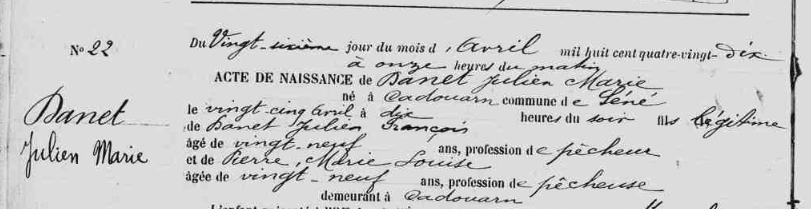 N° 22
Danet
Julien Marie
Du Vingt-sixième jour du mois d'Avril mil huit cent quatre-vingt-dix
à onze heures du matin
ACTE DE NAISSANCE de Danet Julien Marie
né à Cadouarn commune de Séné
le vingt-cinq Avril à dix heures du soir fils légitime
de Danet Julien François
âgé de vingt-neuf ans, profession de pêcheur
et de Pierre, Marie Louise
âgée de vingt-neuf ans, profession de pêcheuse
demeurant à Cadouarn